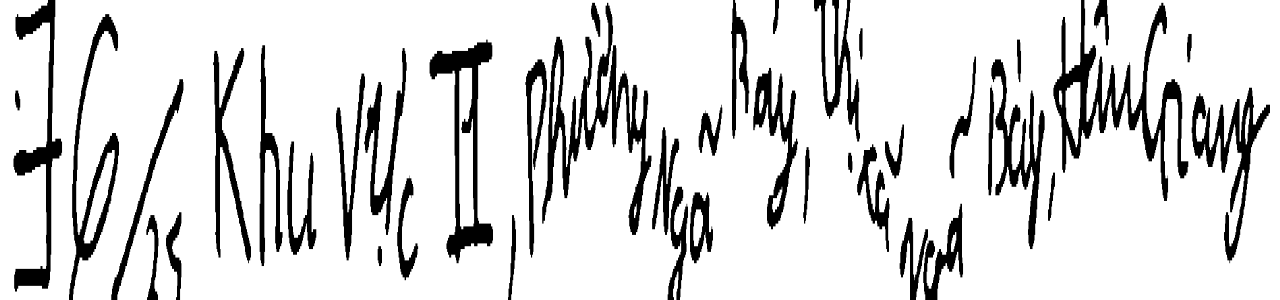 36/25 Khu vực II, phường Ngã Bảy, thị xã Ngã Bảy, Hậu Giang